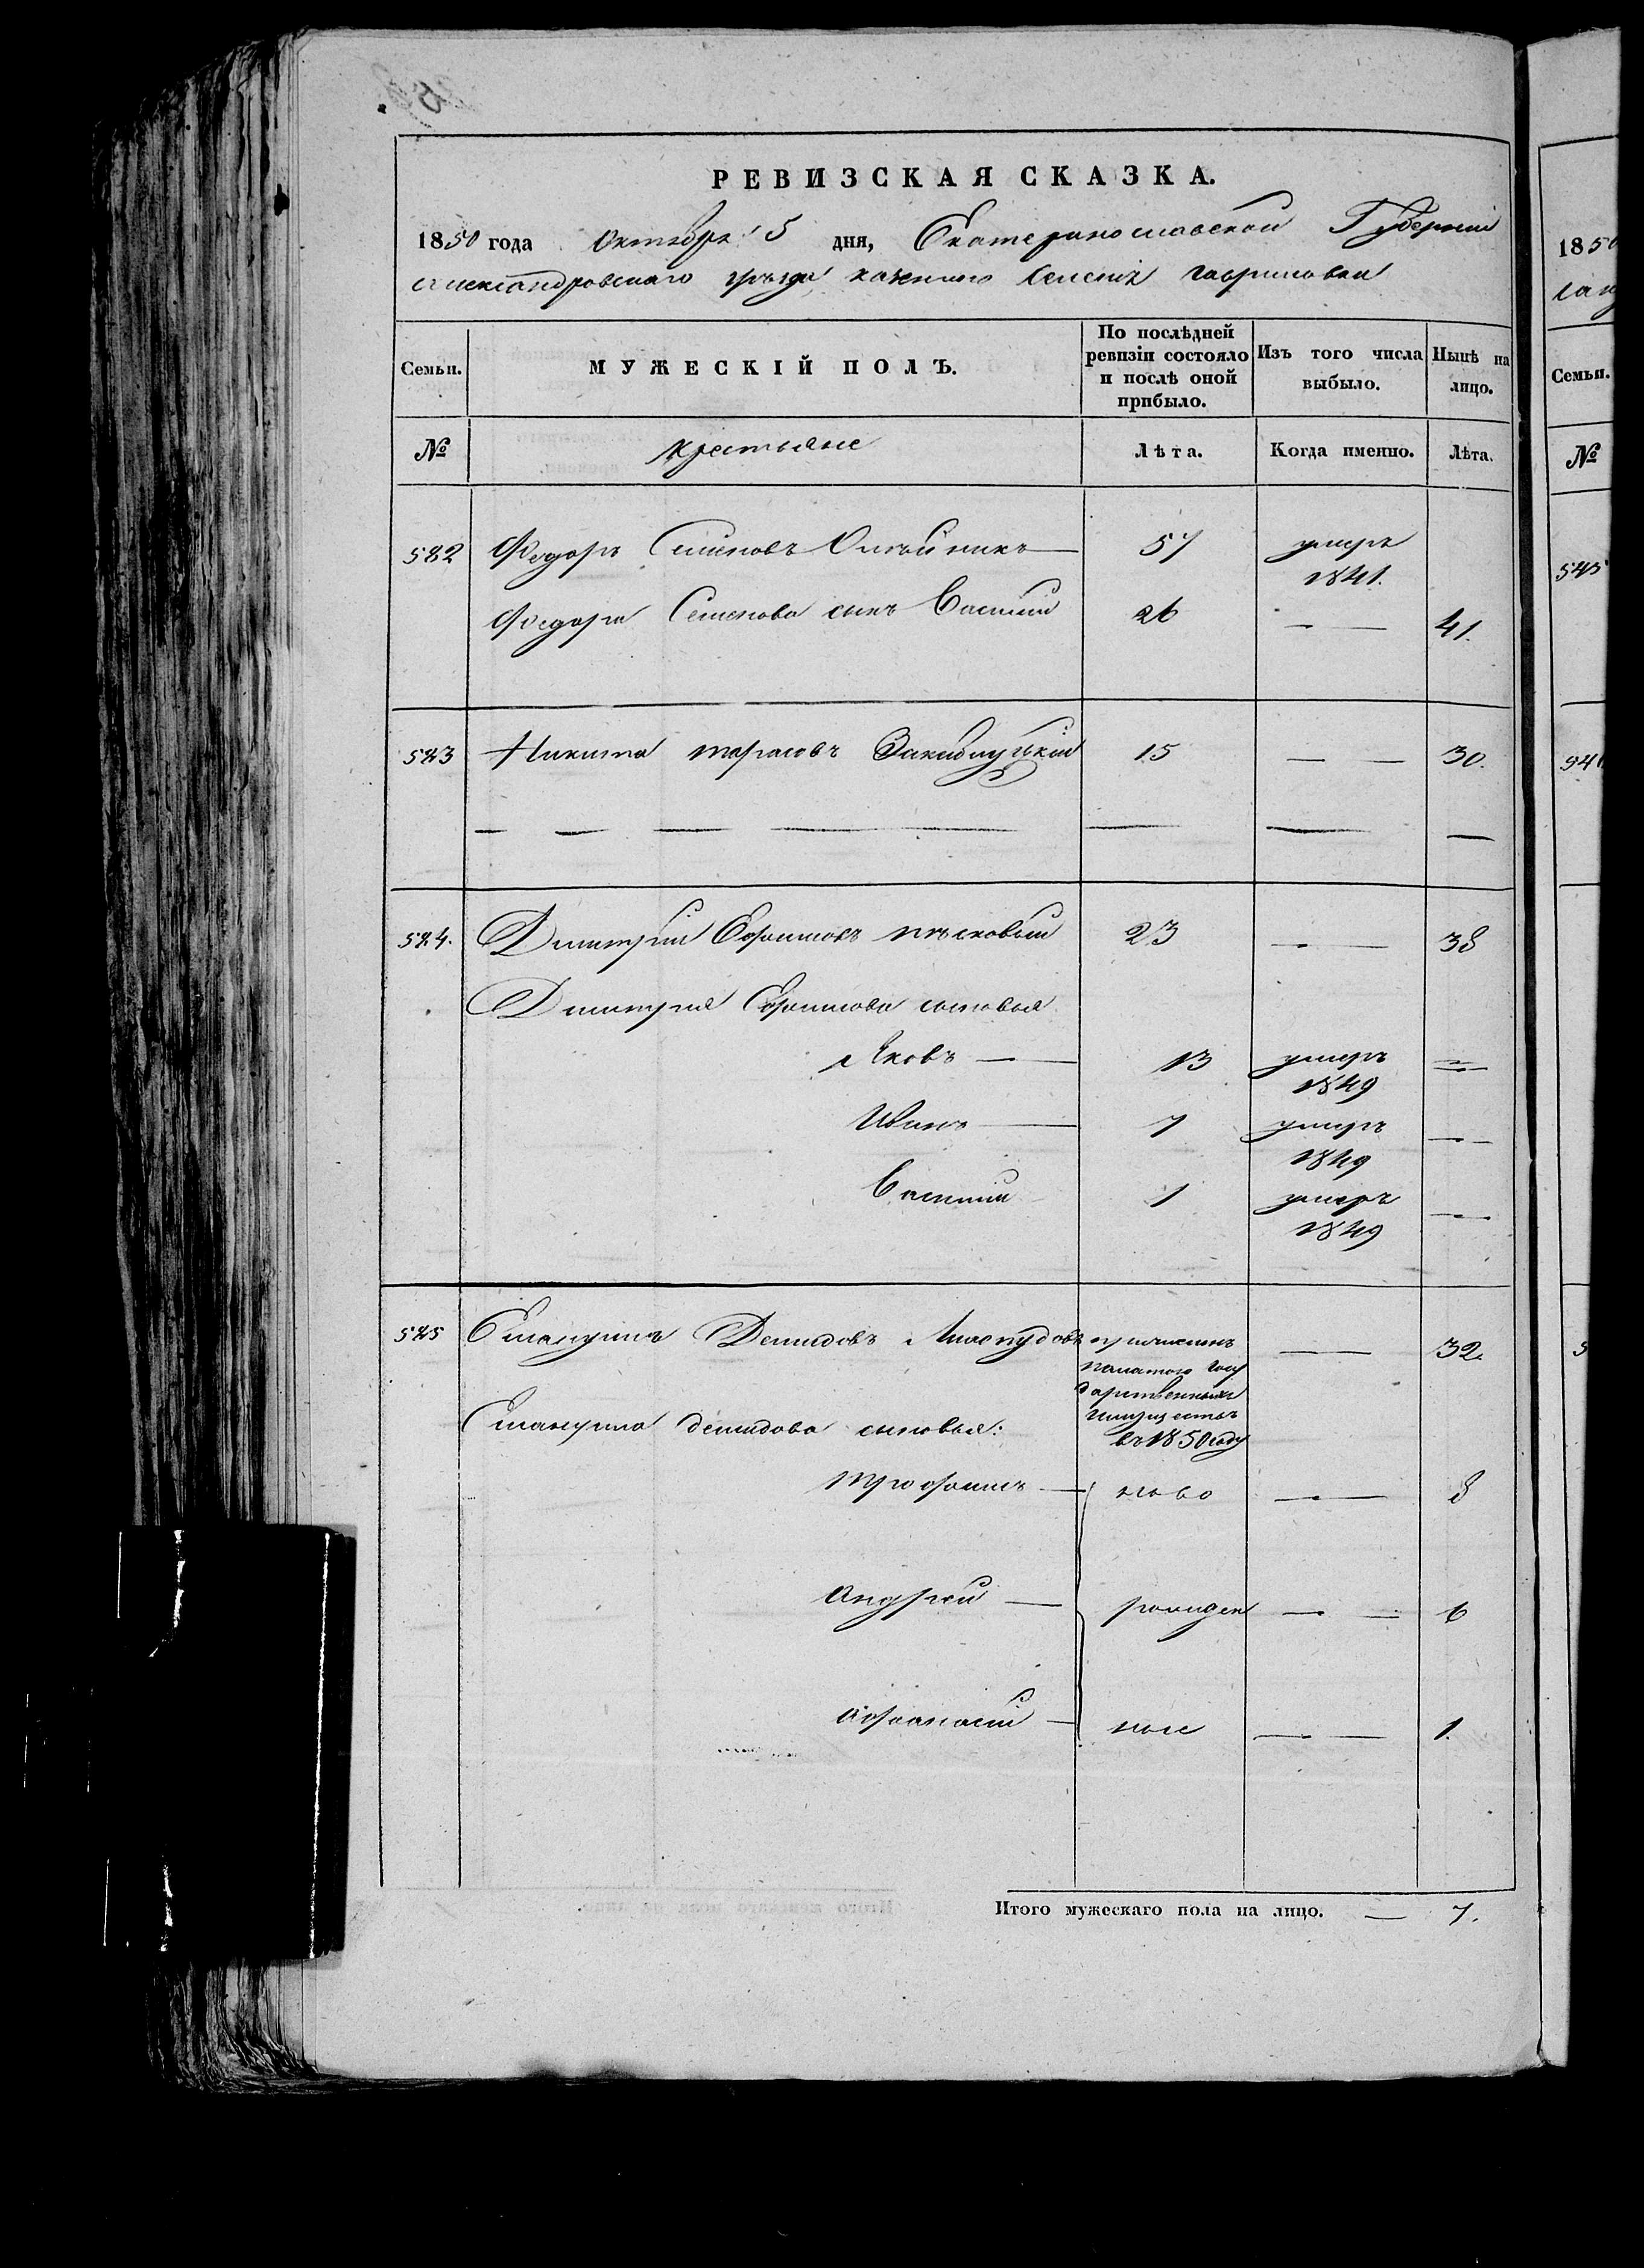 РЕВИЗСКАЯ СКАЗКА.
1850 года Октября 5 дня, Екатеринославской Губернии
Александровскаго уѣзда казеннаго селенія Гавриловки
Семьи. МУЖЕСКІЙ ПОЛЪ. По послѣдней ревизіи состояло и послѣ оной прибыло. Изъ того числа выбыло. Нынѣ на лицо.
№ крестьяне Лѣта. Когда именно. Лѣта.
582 Федоръ Семеновъ Олейникъ 57 умеръ
1841.
Федора Семенова сынъ Василий 26 41.
583 Никита Тарасовъ 15 30.
584. Дмитрий Ефимовъ 23 38
Дмитрия Ефимова сыновья
Яковъ 13 умеръ
1849
Иванъ 7 умеръ
1849
Василий 1 умеръ
1849
585 Демидовъ причисленъ 32.
палатою Госу
дарственныхъ
имуществъ
въ 1850 году
Демидова сыновья:
Трофимъ ново 8
Андрей рожден 6
Афанасий ные 1.
Итого мужескаго пола на лицо. — 7.
1850
Семьи.
№
545